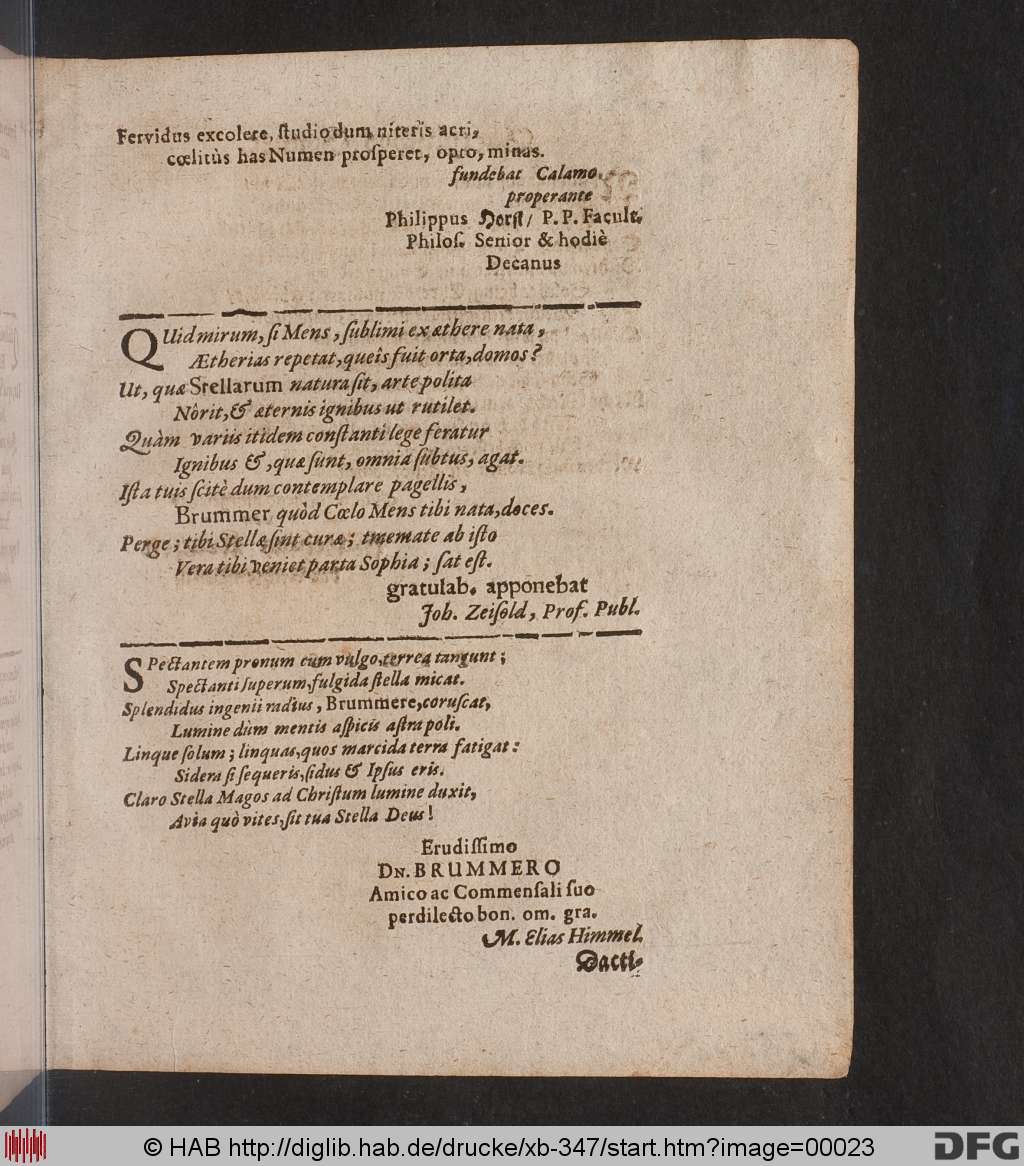 Fervidus excolere, ſtudio dum niteris acri,
cœlitùs has Numen proſperet, opto, minas.
fundebat Calamo
properante
Philippus Horſt/ P. P. Facult.
Philoſ. Senior & hodiè
Decanus
QUid mirum, ſi Mens, ſublimi ex æthere nata,
Ætherias repetat, queîs fuit orta, domos?
Ut, quæ Stellarum natura ſit, arte polita
Nôrit, & æternis ignibus ut rutilet.
Quàm variis itidem conſtanti lege feratur
Ignibus &, quæ ſunt, omnia ſubtus, agat.
Iſta tuis ſcitè dum contemplare pagellis,
Brummer quòd Cœlo Mens tibi nata, doces.
Perge; tibi Stellæ ſint curæ; tmemate ab iſto
Vera tibi veniet parta Sophia; ſat eſt.
gratulab. apponebat
Joh. Zeiſold, Prof. Publ.
SPectantem pronum cum vulgo, terrea tangunt;
Spectanti ſuperum, fulgida ſtella micat.
Splendidus ingenii radius, Brummere, coruſcat,
Lumine dùm mentis aſpicis aſtra poli.
Linque ſolum; linquas, quos marcida terra fatigat:
Sidera ſi ſequeris, ſidus & Ipſus eris.
Claro Stella Magos ad Chriſtum lumine duxit,
Avia quò vites, ſit tua Stella Deus!
Erudiſſimo
DN. BRUMMERO
Amico ac Commenſali ſuo
perdilecto bon. om. gra.
M. Elias Himmel.
Dacti-
© HAB http://diglib.hab.de/drucke/xb-347/start.htm?image=00023
DFG